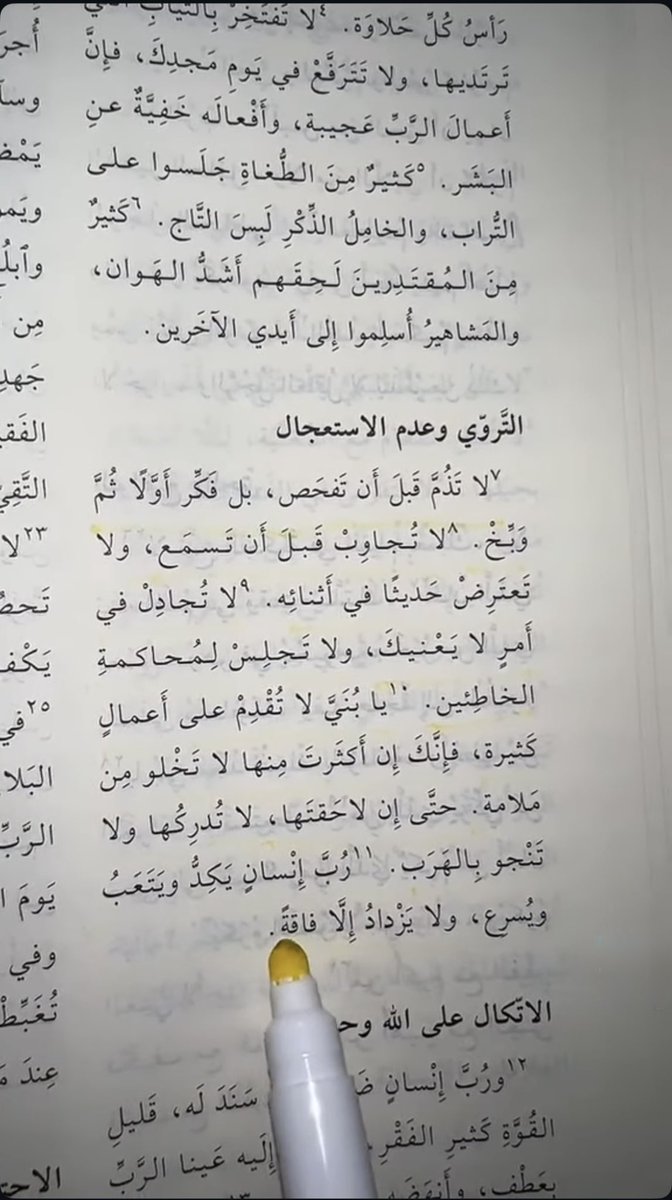 رَأسُ كُلِّ حَلاوَة. ٤لا تَفتَخِرْ بِالثِّيابِ
تَرتَديها، ولا تَتَرَفَّعْ في يَومِ مَجدِكَ، فإِنَّ
أَعمالَ الرَّبِّ عَجيبة، وأَفْعالَه خَفِيَّةٌ عنِ
البَشَر. ٥كَثيرٌ مِنَ الطُّغاةِ جَلَسوا على
التُّراب، والخامِلُ الذِّكْرِ لَبِسَ التَّاج. ٦كَثيرٌ
مِنَ المُقتَدِرينَ لَحِقَهم أَشَدُّ الهَوان،
والمَشاهيرُ أُسلِموا إِلى أَيدي الآخَرين.
التَّروّي وعدم الاستعجال
٧لا تَذُمَّ قَبلَ أَن تَفحَص، بل فَكِّر أَوَّلًا ثُمَّ
وَبِّخْ. ٨لا تُجاوِبْ قَبلَ أَن تَسمَع، ولا
تَعتَرِضْ حَديثًا في أَثنائِه. ٩لا تُجادِلْ في
أَمرٍ لا يَعْنيكَ، ولا تَجلِسْ لِمُحاكمةِ
الخاطِئين. ١٠يا بُنَيَّ لا تُقْدِمْ على أَعمالٍ
كَثيرة، فإِنَّكَ إِن أَكثَرتَ مِنها لا تَخْلو مِن
مَلامة. حتَّى إِن لاحَقتَها، لا تُدرِكُها ولا
تَنْجو بِالهَرَب. ١١رُبَّ إِنْسانٍ يَكِدُّ ويَتَعَبُ
ويُسرِع، ولا يَزْدادُ إِلَّا فاقةً.
الاتّكال على الله
١٢ورُبَّ إِنْسانٍ سَنَدَ لَه، قَليلِ
القُوَّةِ كَثيرِ الفَقْرِ إِلَيه عَينا الرَّبِّ
بِعَطْف، وأَنهَضَه
وٱبلُ
مِن
جَهدِ
الفَق
التَّقِي
٢٣لا
تَحصُ
يَكْف
٢٥في
البَلا
الرَّبِّ
يَومَ
وفي
تُغَبِّطْ
عِندَ